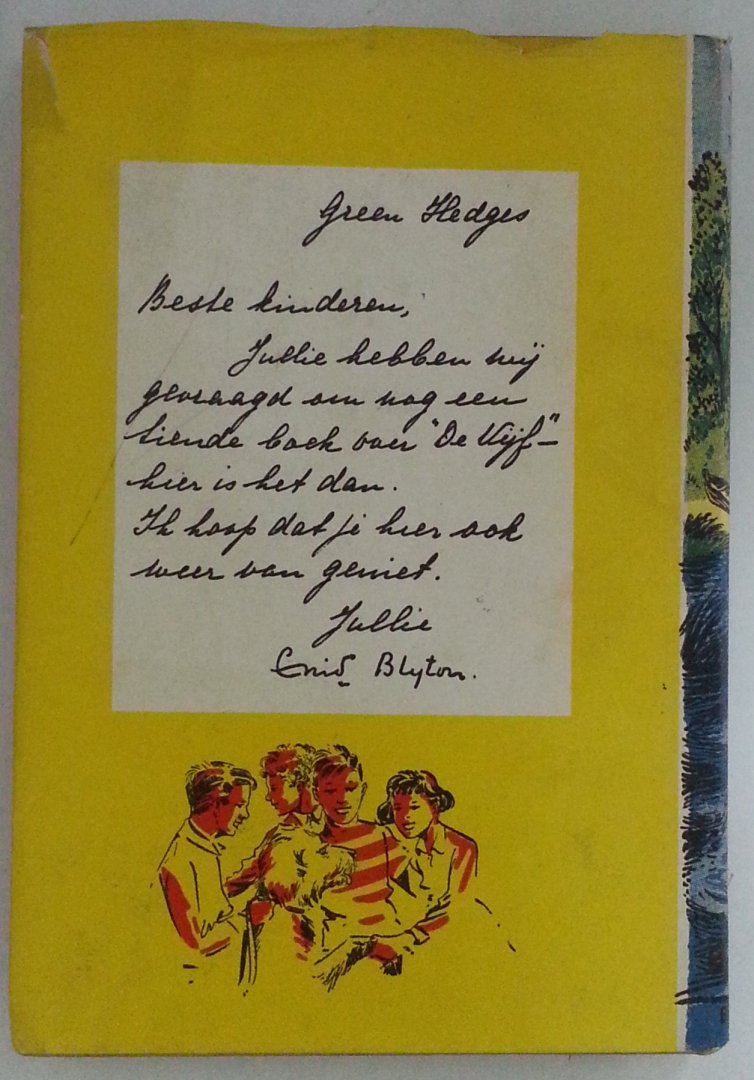 Green Hedges
Beste kinderen,
Jullie hebben mij
gevraagd om nog een
tiende boek voor "De Vijf"–
hier is het dan.
Ik hoop dat je hier ook
weer van geniet.
Jullie
Enid Blyton.